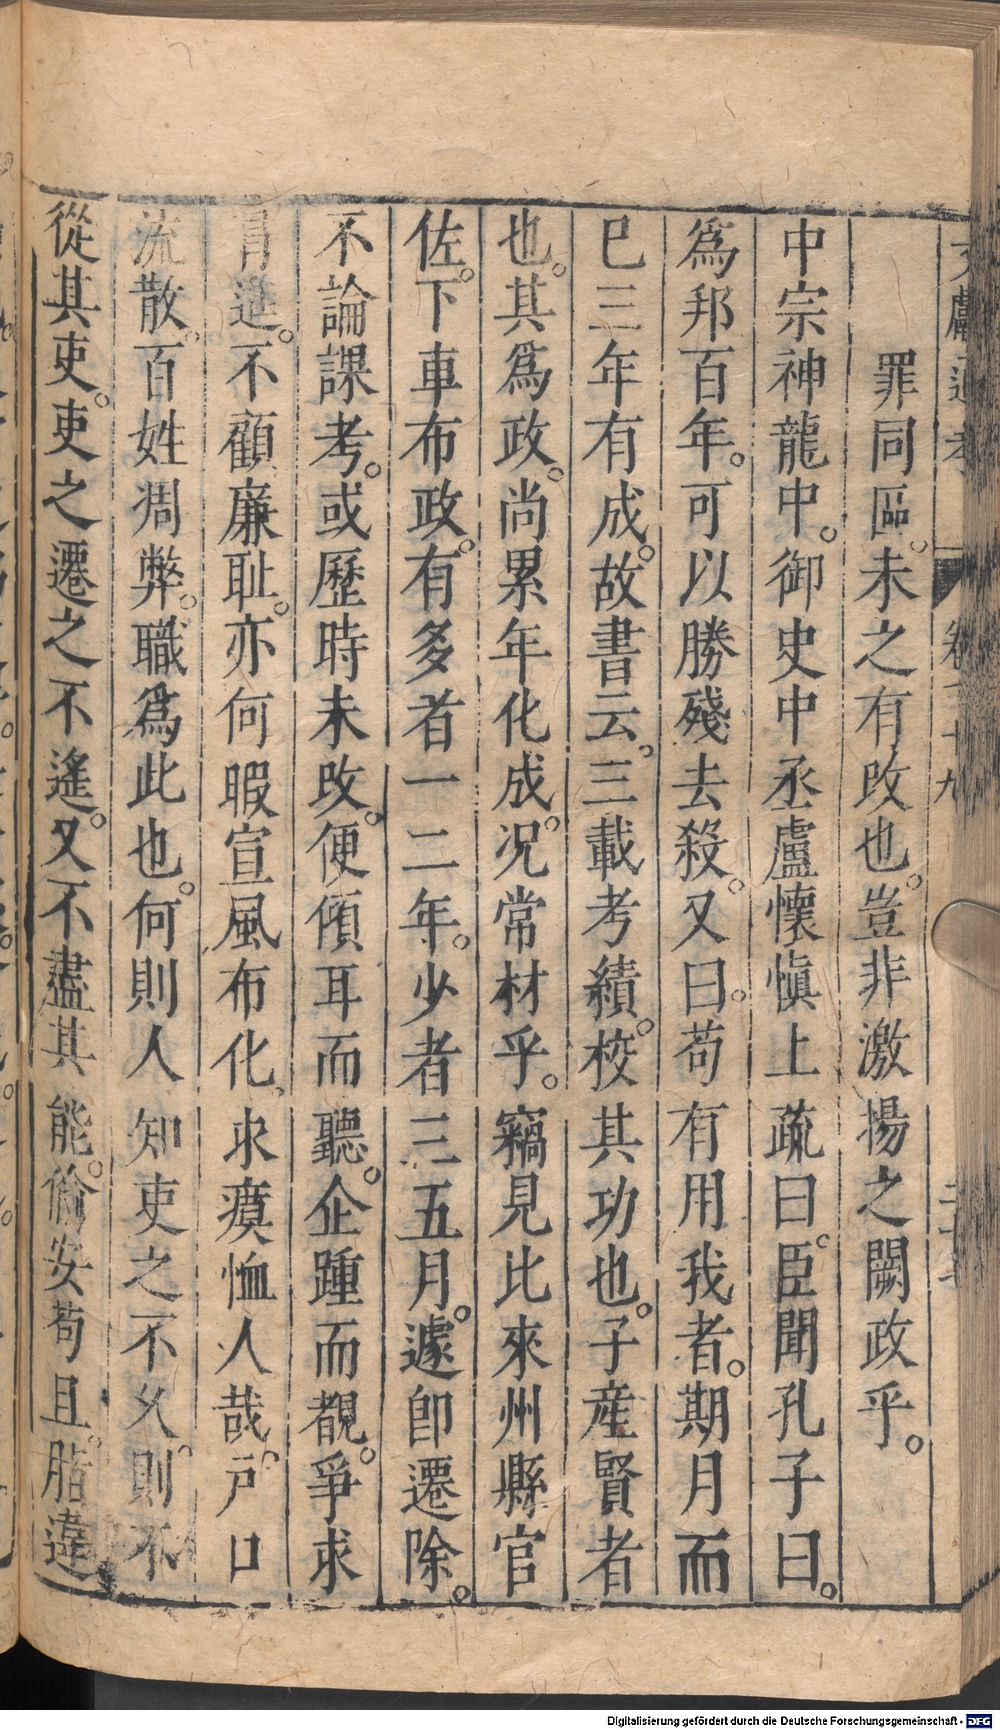 罪同區。未之有改也。豈非激揚之闕政乎。
中宗神龍中。御史中丞盧懷慎上疏曰。臣聞孔子曰。
為邦百年。可以勝殘去殺。又曰。苟有用我者。期月而
已三年有成。故書云。三載考績。校其功也。子產賢者
也。其為政。尚累年化成。况常材乎。竊見比來州縣官
佐。下車布政。有多者一二年。少者三五月。遽即遷除。
不論課考。或歷時未改。便傾耳而聽。企踵而覩。爭求
冐進。不顧廉耻。亦何暇宣風布化、求瘼恤人哉。戶口
流散。百姓凋弊。職為此也。何則人知吏之不久。則不
從其吏。吏之遷之不遙。又不盡其能。偷安苟且。脂違
文獻通考 卷 十九
Digitalisierung gefördert durch die Deutsche Forschungsgemeinschaft - DFG